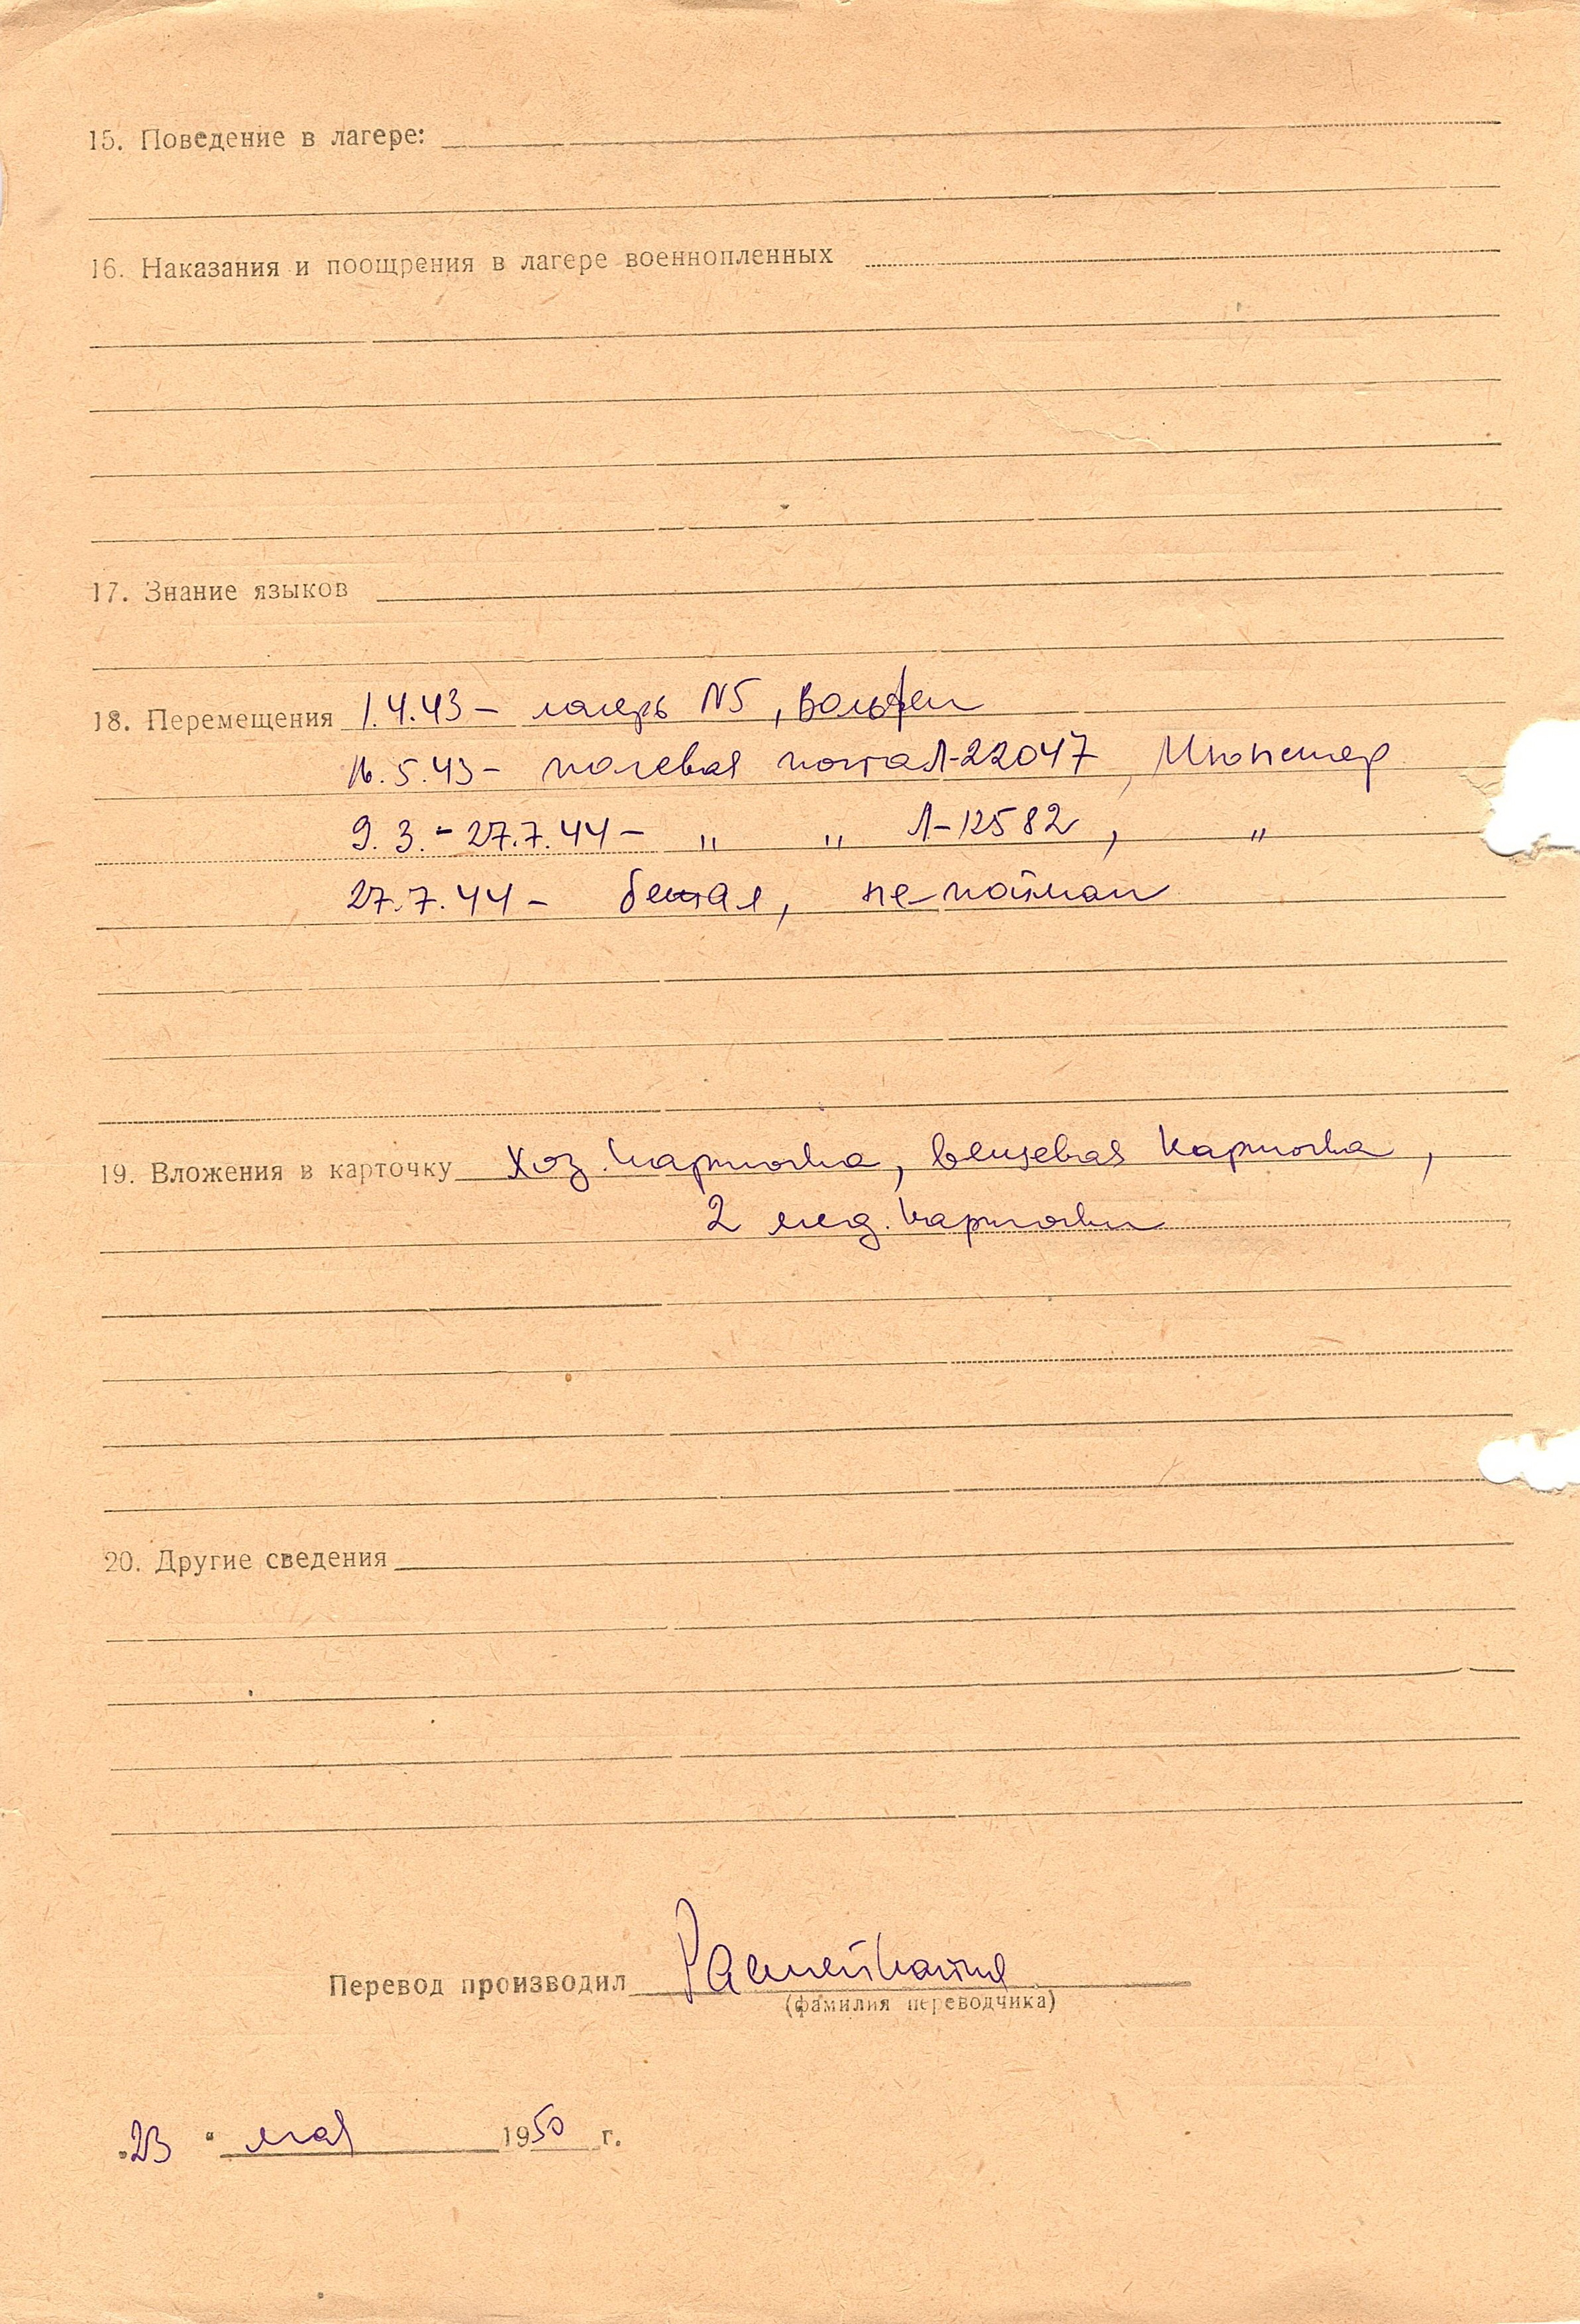 15. Поведение в лагере:
16. Наказания и поощрения в лагере военнопленных
17. Знание языков
18. Перемещения 1.4.43 – лагерь N5, Вольфен
16.5.43 – полевая почта Л-22047, Мюнстер
9.3. – 27.7.44 – „ „ Л-12582, „
27.7.44 – бежал, не пойман
19. Вложения в карточку Хоз. карточка, вещевая карточка,
2 мед. карточки
20. Другие сведения
Перевод производил
(фамилия переводчика)
„23“ мая 1950 г.